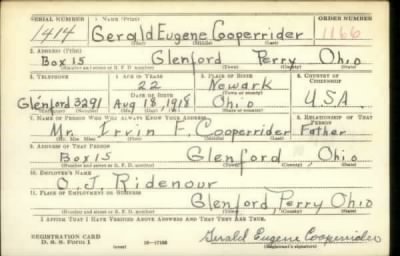 SERIAL NUMBER 1. NAME (Print) ORDER NUMBER
1414 Gerald Eugene Cooperrider 1166
(First) (Middle) (Last)
2. ADDRESS (Print)
Box 15 Glenford Perry Ohio
(Number and street or R. F. D. number) (Town) (County) (State)
3. TELEPHONE 4. AGE IN YEARS 5. PLACE OF BIRTH 6. COUNTRY OF CITIZENSHIP
22 Newark
(Town or county)
Glenford 3291 Aug 18, 1918 Ohio U.S.A.
7. NAME OF PERSON WHO WILL ALWAYS KNOW YOUR ADDRESS 8. RELATIONSHIP OF THAT PERSON
Mr. Irvin F. Cooperrider Father
(Mr. Mrs. Miss) (First) (Middle) (Last)
9. ADDRESS OF THAT PERSON
Box 15 Glenford, Ohio
(Number and street or R. F. D. number) (Town) (County) (State)
10. EMPLOYER'S NAME
O. J. Ridenour
11. PLACE OF EMPLOYMENT OR BUSINESS
Glenford, Perry Ohio
(Number and street or R. F. D. number) (Town) (County) (State)
I AFFIRM THAT I HAVE VERIFIED ABOVE ANSWERS AND THAT THEY ARE TRUE.
REGISTRATION CARD
D. S. S. Form 1 (over) 16-17105 Gerald Eugene Cooperrider
(Registrant's signature)